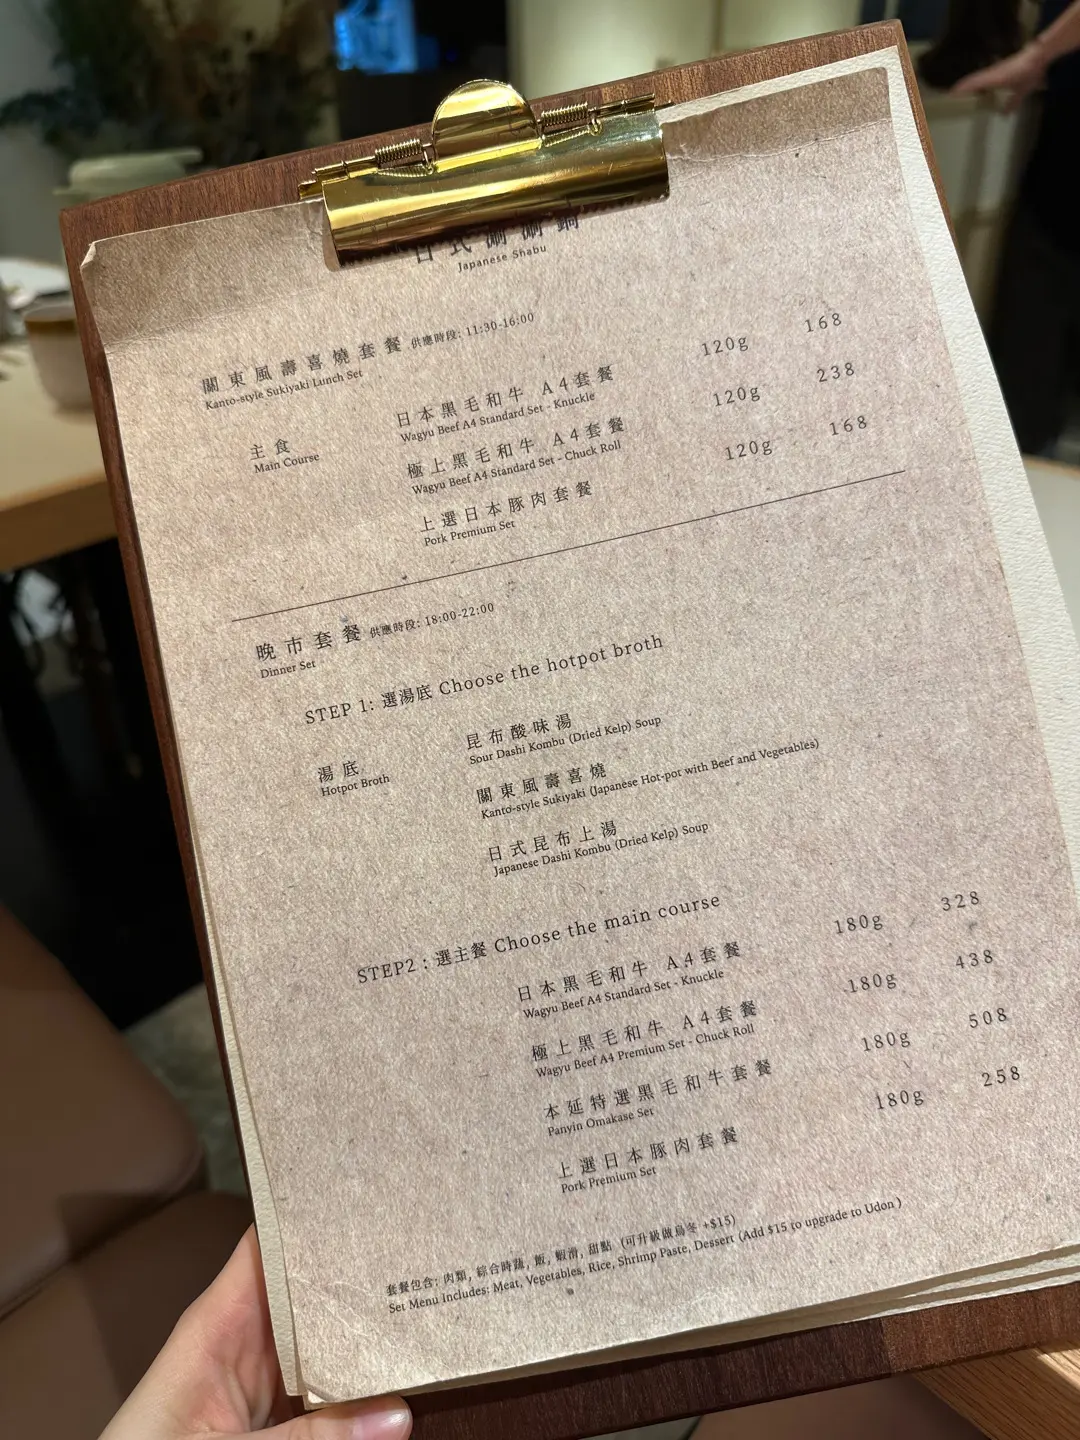 日式涮涮鍋
Japanese Shabu
關東風壽喜燒套餐 供應時段: 11:30-16:00
Kanto-style Sukiyaki Lunch Set
主食
Main Course
日本黑毛和牛 A4套餐 120g 168
Wagyu Beef A4 Standard Set - Knuckle
極上黑毛和牛 A4套餐 120g 238
Wagyu Beef A4 Standard Set - Chuck Roll
上選日本豚肉套餐 120g 168
Pork Premium Set
晚市套餐 供應時段: 18:00-22:00
Dinner Set
STEP 1: 選湯底 Choose the hotpot broth
湯底
Hotpot Broth
昆布酸味湯
Sour Dashi Kombu (Dried Kelp) Soup
關東風壽喜燒
Kanto-style Sukiyaki (Japanese Hot-pot with Beef and Vegetables)
日式昆布上湯
Japanese Dashi Kombu (Dried Kelp) Soup
STEP2 : 選主餐 Choose the main course
日本黑毛和牛 A4套餐 180g 328
Wagyu Beef A4 Standard Set - Knuckle
極上黑毛和牛 A4套餐 180g 438
Wagyu Beef A4 Premium Set - Chuck Roll
本延特選黑毛和牛套餐 180g 508
Panyin Omakase Set
上選日本豚肉套餐 180g 258
Pork Premium Set
套餐包含: 肉類, 綜合時蔬, 飯, 蝦滑, 甜點 (可升級做烏冬 +$15)
Set Menu Includes: Meat, Vegetables, Rice, Shrimp Paste, Dessert (Add $15 to upgrade to Udon )